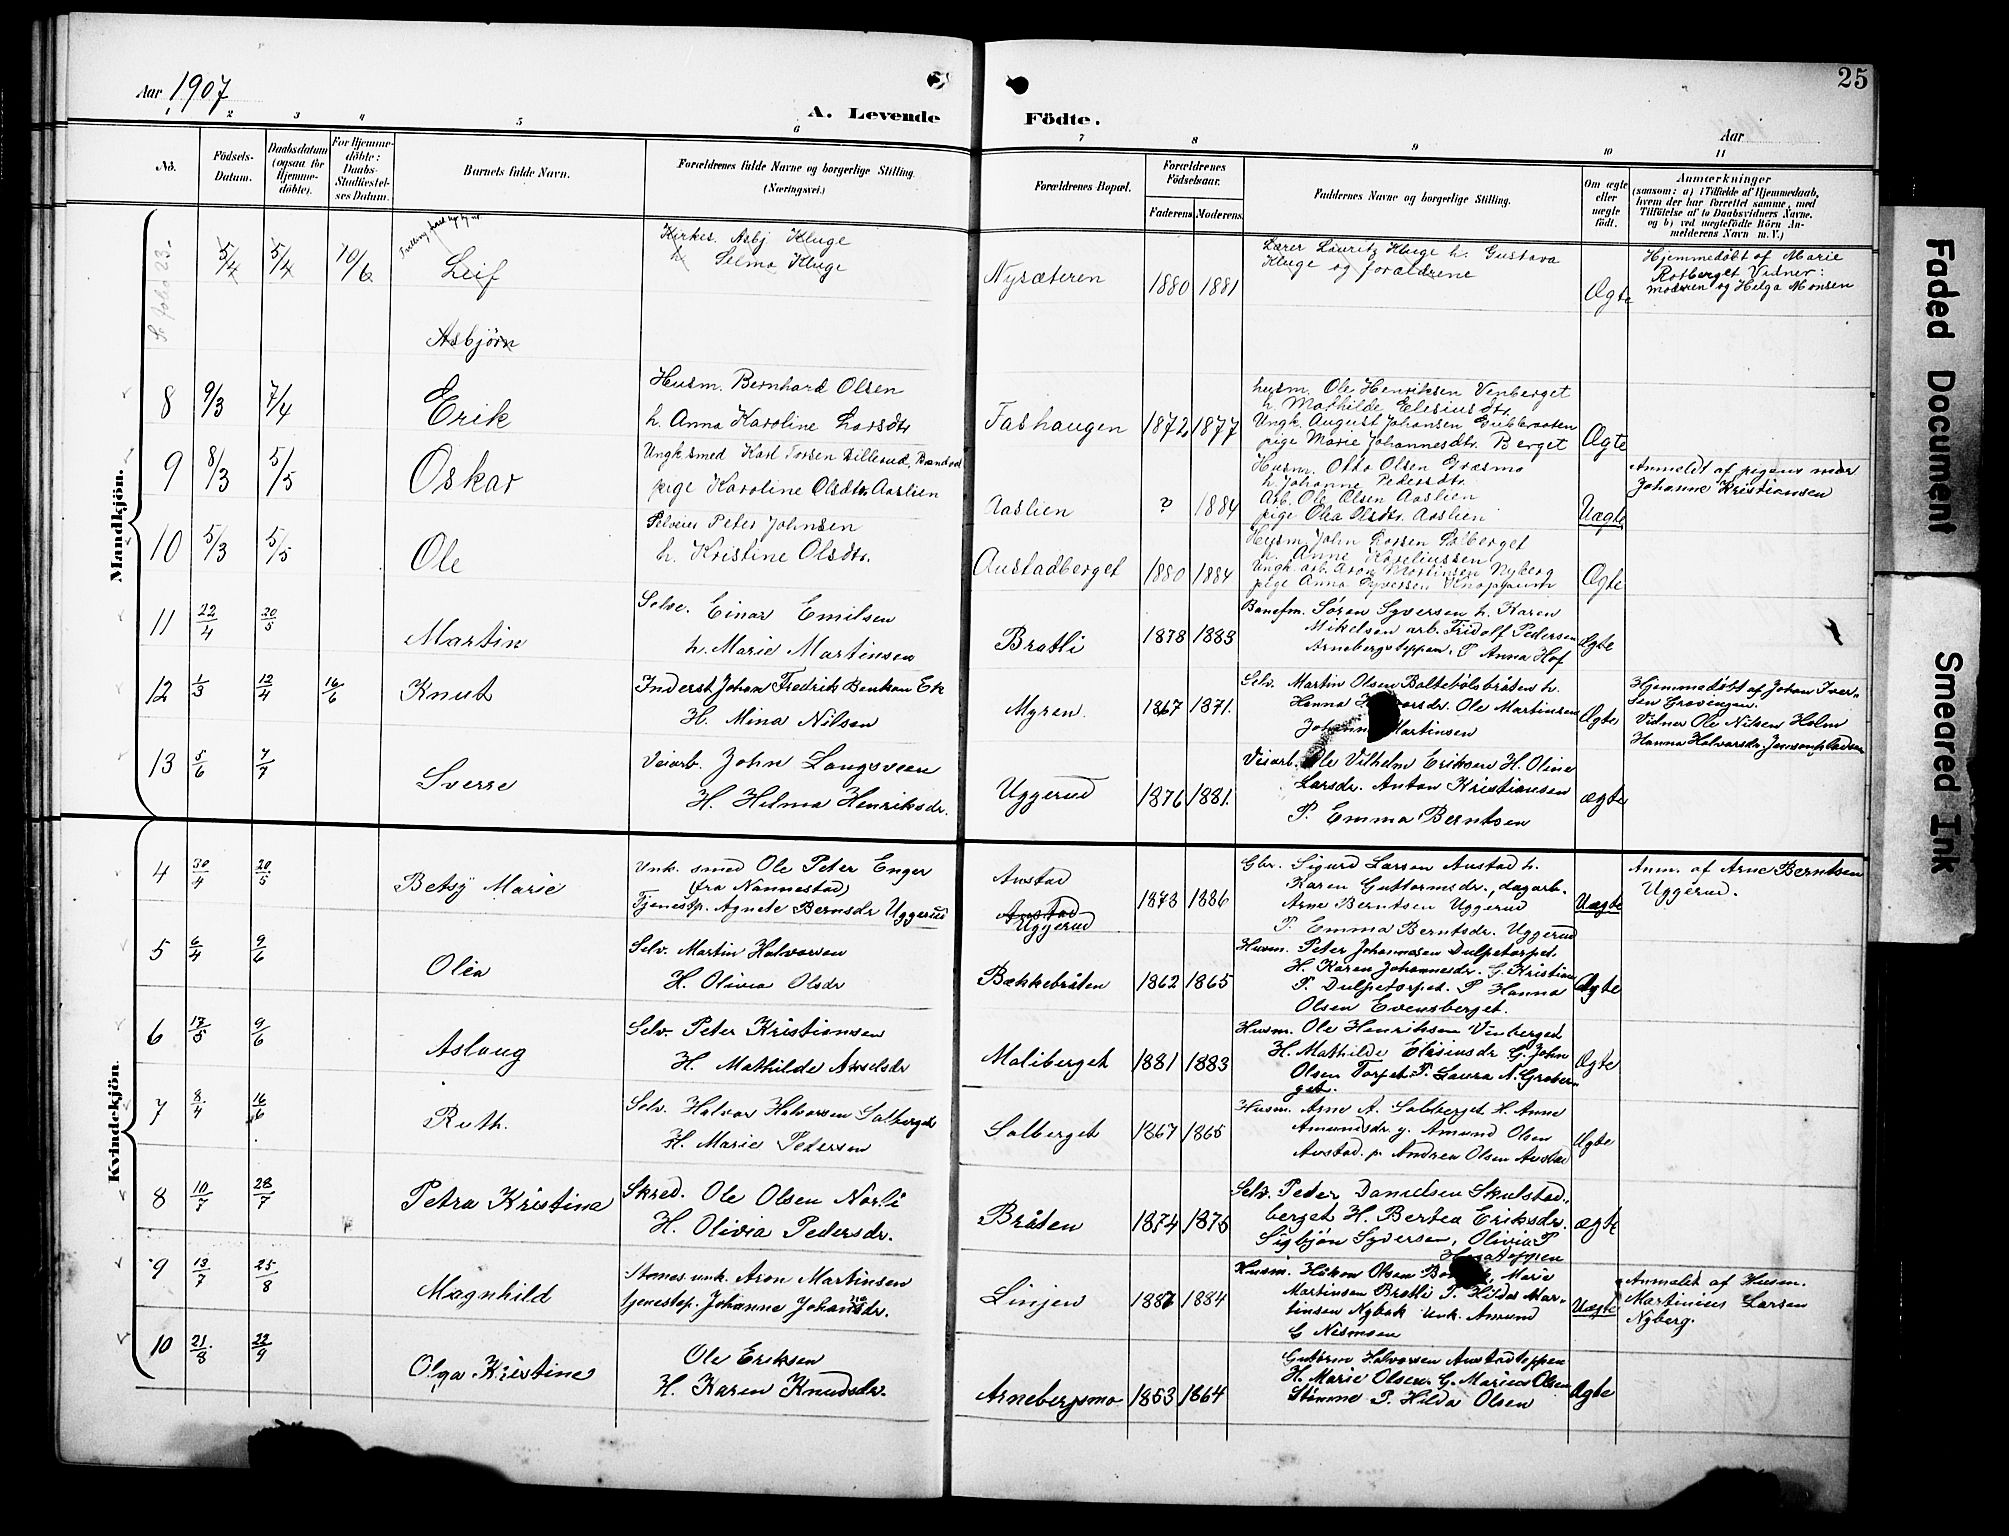 25
Aar 1907
A. Levende
Födte.
Aar
1 2 3 4 5 6 7 8 9 10 11
No.
Födsels-
Datum.
Daabsdatum
(ogsaa for
Hjemme-
döbte).
For Hjemme-
döbte:
Daabs-
Stadfæstel-
ses Datum.
Barnets fulde Navn.
Forældrenes fulde Navne og borgerlige Stilling.
(Næringsvei.)
Forældrenes Bopæl.
Forældrenes
Födselsaar.
Faderens Moderens
Faddernes Navne og borgerlige Stilling.
Om ægte
eller
uægte
födt.
Anmærkninger
(saasom: a) i Tilfælde af Hjemmedaab,
hvem der har forrettet samme, med
Tilföielse af to Daabsvidners Navne.
og b) ved uægtefödte Börn An-
melderens Navn m. V.)
Mandkjön.
Se folio 23.
5/4 5/4 10/6
Leif
Asbjørn
Kirkes. Asbj Kluge
h. Selma Kluge
Nysæteren
1880 1881
Lærer Lauritz Kluge h. Gustava
Kluge og forældrene
Ægte
Hjemmedøbt af Marie
Rotberget Vidner:
moderen og Helga Monsen
8 9/3 7/4
Erik
Husm. Bernhard Olsen
h. Anna Karoline Larsdtr
Fashaugen
1872 1877
husm. Ole Henriksen Venberget
h. Mathilde Elesiusdtr.
Ungk. August Johansen Gubbraaten
pige Marie Johannesdtr. Berget
Ægte
9 8/3 5/5
Oskar
Ungk. smed Karl Torsen Lillerud, Brandval
pige Karoline Olsdtr. Aaslien
Aaslien
? 1884
Husm. Otto Olsen Græsmo
h. Johanne Pedersdtr.
Arb. Ole Olsen Aaslien
pige Olea Olsdtr. Aaslien
Uægte
Anmeldt af pigens mor
Johanne Kristiansen
10 5/3 5/5
Ole
Selveier Peter Johnsen
h. Kristine Olsdtr.
Austadberget
1880 1884
Husm. John Larsen Solberget
h. Anne Kareliussen
Ungk. arb. Aron Martinsen Nyberg
pige Anna Syversen
Ægte
11 22/4 20/5
Martin
Selve. Einar Emilsen
h. Marie Martinsen
Bratli
1878 1883
Banefm. Søren Syversen h. Karen
Mikelsen arb. Fridolf Pedersen
Arnebergstoppen. P Anna Hof
Ægte
12 1/3 12/4 16/6
Knut
Inderst Johan Fredrik Ek
H. Mina Nilsen
Myren.
1867 1871.
Selv. Martin Olsen Boltebölsbråten h.
Hanna Ole Martinsen
Martinsen
Ægte
Hjemmedøbt af Johan Iver-
sen Grovengen.
Vidner Ole Nilsen Holm
Hanna Halvorsdr.
13 5/6 7/7
Sverre
Veiarb. John Langsveen
H. Hilma Henriksdr.
Uggerud
1876 1881.
Veiarb. Ole Vilhelm Eriksen H. Oline
Larsdr. Anton Kristiansen
P. Emma Berntsen
ægte
Kvindekjön.
4 30/4 20/5
Betsy Marie
Unk. smed Ole Peter Enger
(fra Nannestad)
Tjenestp. Agnete Bernsdr Uggerud
Austad
Austad
Uggerud
1878 1886
Gbr. Sigurd Larsen Austad h.
Karen Guttormsdr., dagarb.
Arne Berntsen Uggerud
P. Emma Berntsdr. Uggerud
Uægte
Anm. af Arne Berntsen
Uggerud.
5 6/4 9/6
Olea
Selv. Martin Halvorsen
H. Olivia Olsdr
Bækkebråten
1862 1865
Husm. Peter Johannesen Dulpetorpet.
H. Karen Johannesdr. G. Kristian
P. Dulpetorpet. P Hanna
Olsen Evensberget.
Ægte
6 17/5 9/6
Aslaug
Selv. Peter Kristiansen
H. Mathilde Axselsdr
Moliberget
1881 1883
Husm. Ole Henriksen Vinberget
H. Mathilde Elisiusdr G. John
Olsen Torpet. P. Laura N. Grober-
get.
Ægte
7 8/4 16/6
Ruth.
Selv. Halvor Halvorsen Solberget
H. Marie Pedersen
Solberget
1867 1865
Husm. Arne A. Solberget H. Anne
Amundsdr. g. Amund Olsen
Austad. p. Andrea Olsen Austad
Ægte
8 10/7 28/7
Petra Kristina
Skred. Ole Olsen Norli
H. Olivia Pedersdr.
Bråten
1874 1876
Selv. Peder Danielsen Skulstad-
berget H. Bertea Eriksdr.
Sigbjön Syversen, Olivia P
ægte
9 13/7 25/8
Magnhild
unk. Aron Martinsen
tjenestep. Johanne Johansdr.
Linjen
1887 1884
Husm. Håkon Olsen Marie
Martinsen Bratli P. Hilda Mar-
tinsen Nybak unk. Amund
G Nismoen
Uægte
Anmeldt af Husm.
Martinius Larsen
Nyberg.
10 21/8 22/9
Olga Kristine
Ole Eriksen
H. Karen Knudsdr.
Arnebergsmo
1853 1864
Guttorm Halvorsen Austadtoppen
H. Marie Olsen. G. Marius Olsen
Stömme P. Hilda Olsen
Ægte
Faded Document
Smeared Ink